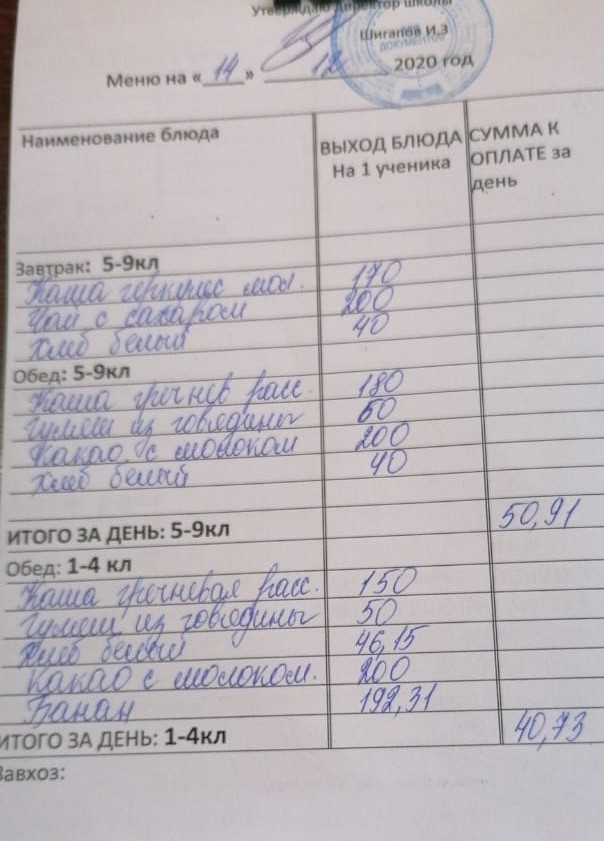 Утверждаю директор школы
Шигапов И.З
ДОКУМЕНТОВ
Меню на «14» 12 2020 год
Наименование блюда ВЫХОД БЛЮДА На 1 ученика СУММА К ОПЛАТЕ за день
Завтрак: 5-9кл
Каша геркулес мол. 170
Чай с сахаром 200
Хлеб белый 40
Обед: 5-9кл
Каша гречнев расс. 180
Гуляш из говядины 60
Какао с молоком 200
Хлеб белый 40
ИТОГО ЗА ДЕНЬ: 5-9кл 50,91
Обед: 1-4 кл
Каша гречневая расс. 150
Гуляш из говядины 50
Хлеб белый 46,15
Какао с молоком. 200
Банан 192,31
ИТОГО ЗА ДЕНЬ: 1-4кл 40,73
Завхоз: